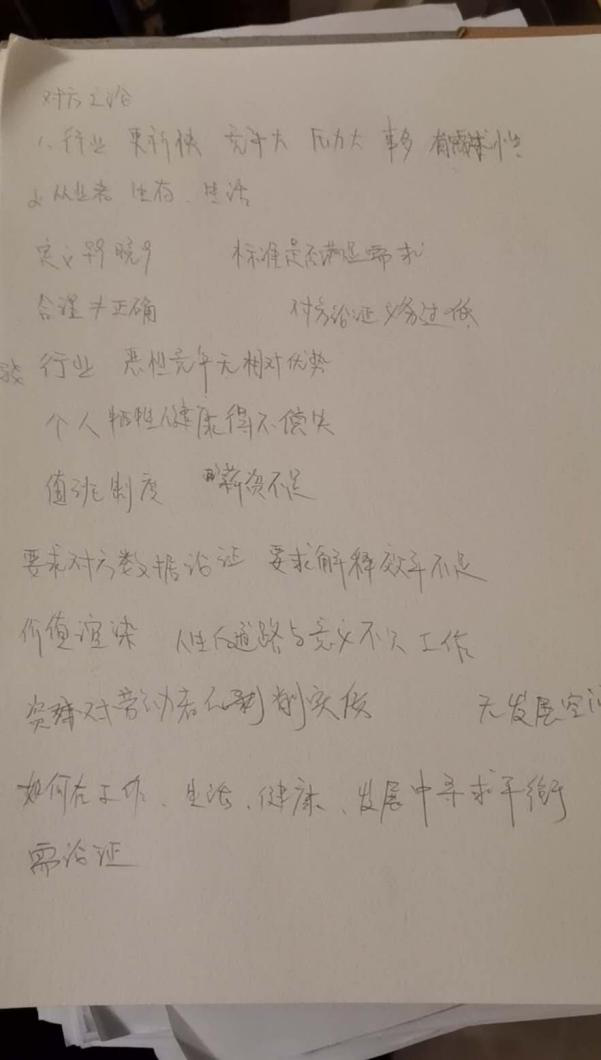 对方立论
1、行业 更新快 竞争大 压力大 事多 有需求性
2、从业者 生存、生活
定义 早9晚9 标准是否满足需求
合理≠正确 对方论证义务过低
行业 恶性竞争无相对优势
个人 牺牲健康得不偿失
值班制度 薪资不足
要求对方数据论证 要求解释效率不足
价值渲染 人生的道路与意义不只工作
资 对劳动者的 剥削实质 无发展空间
如何在工作、生活、健康、发展中寻求平衡
需论证